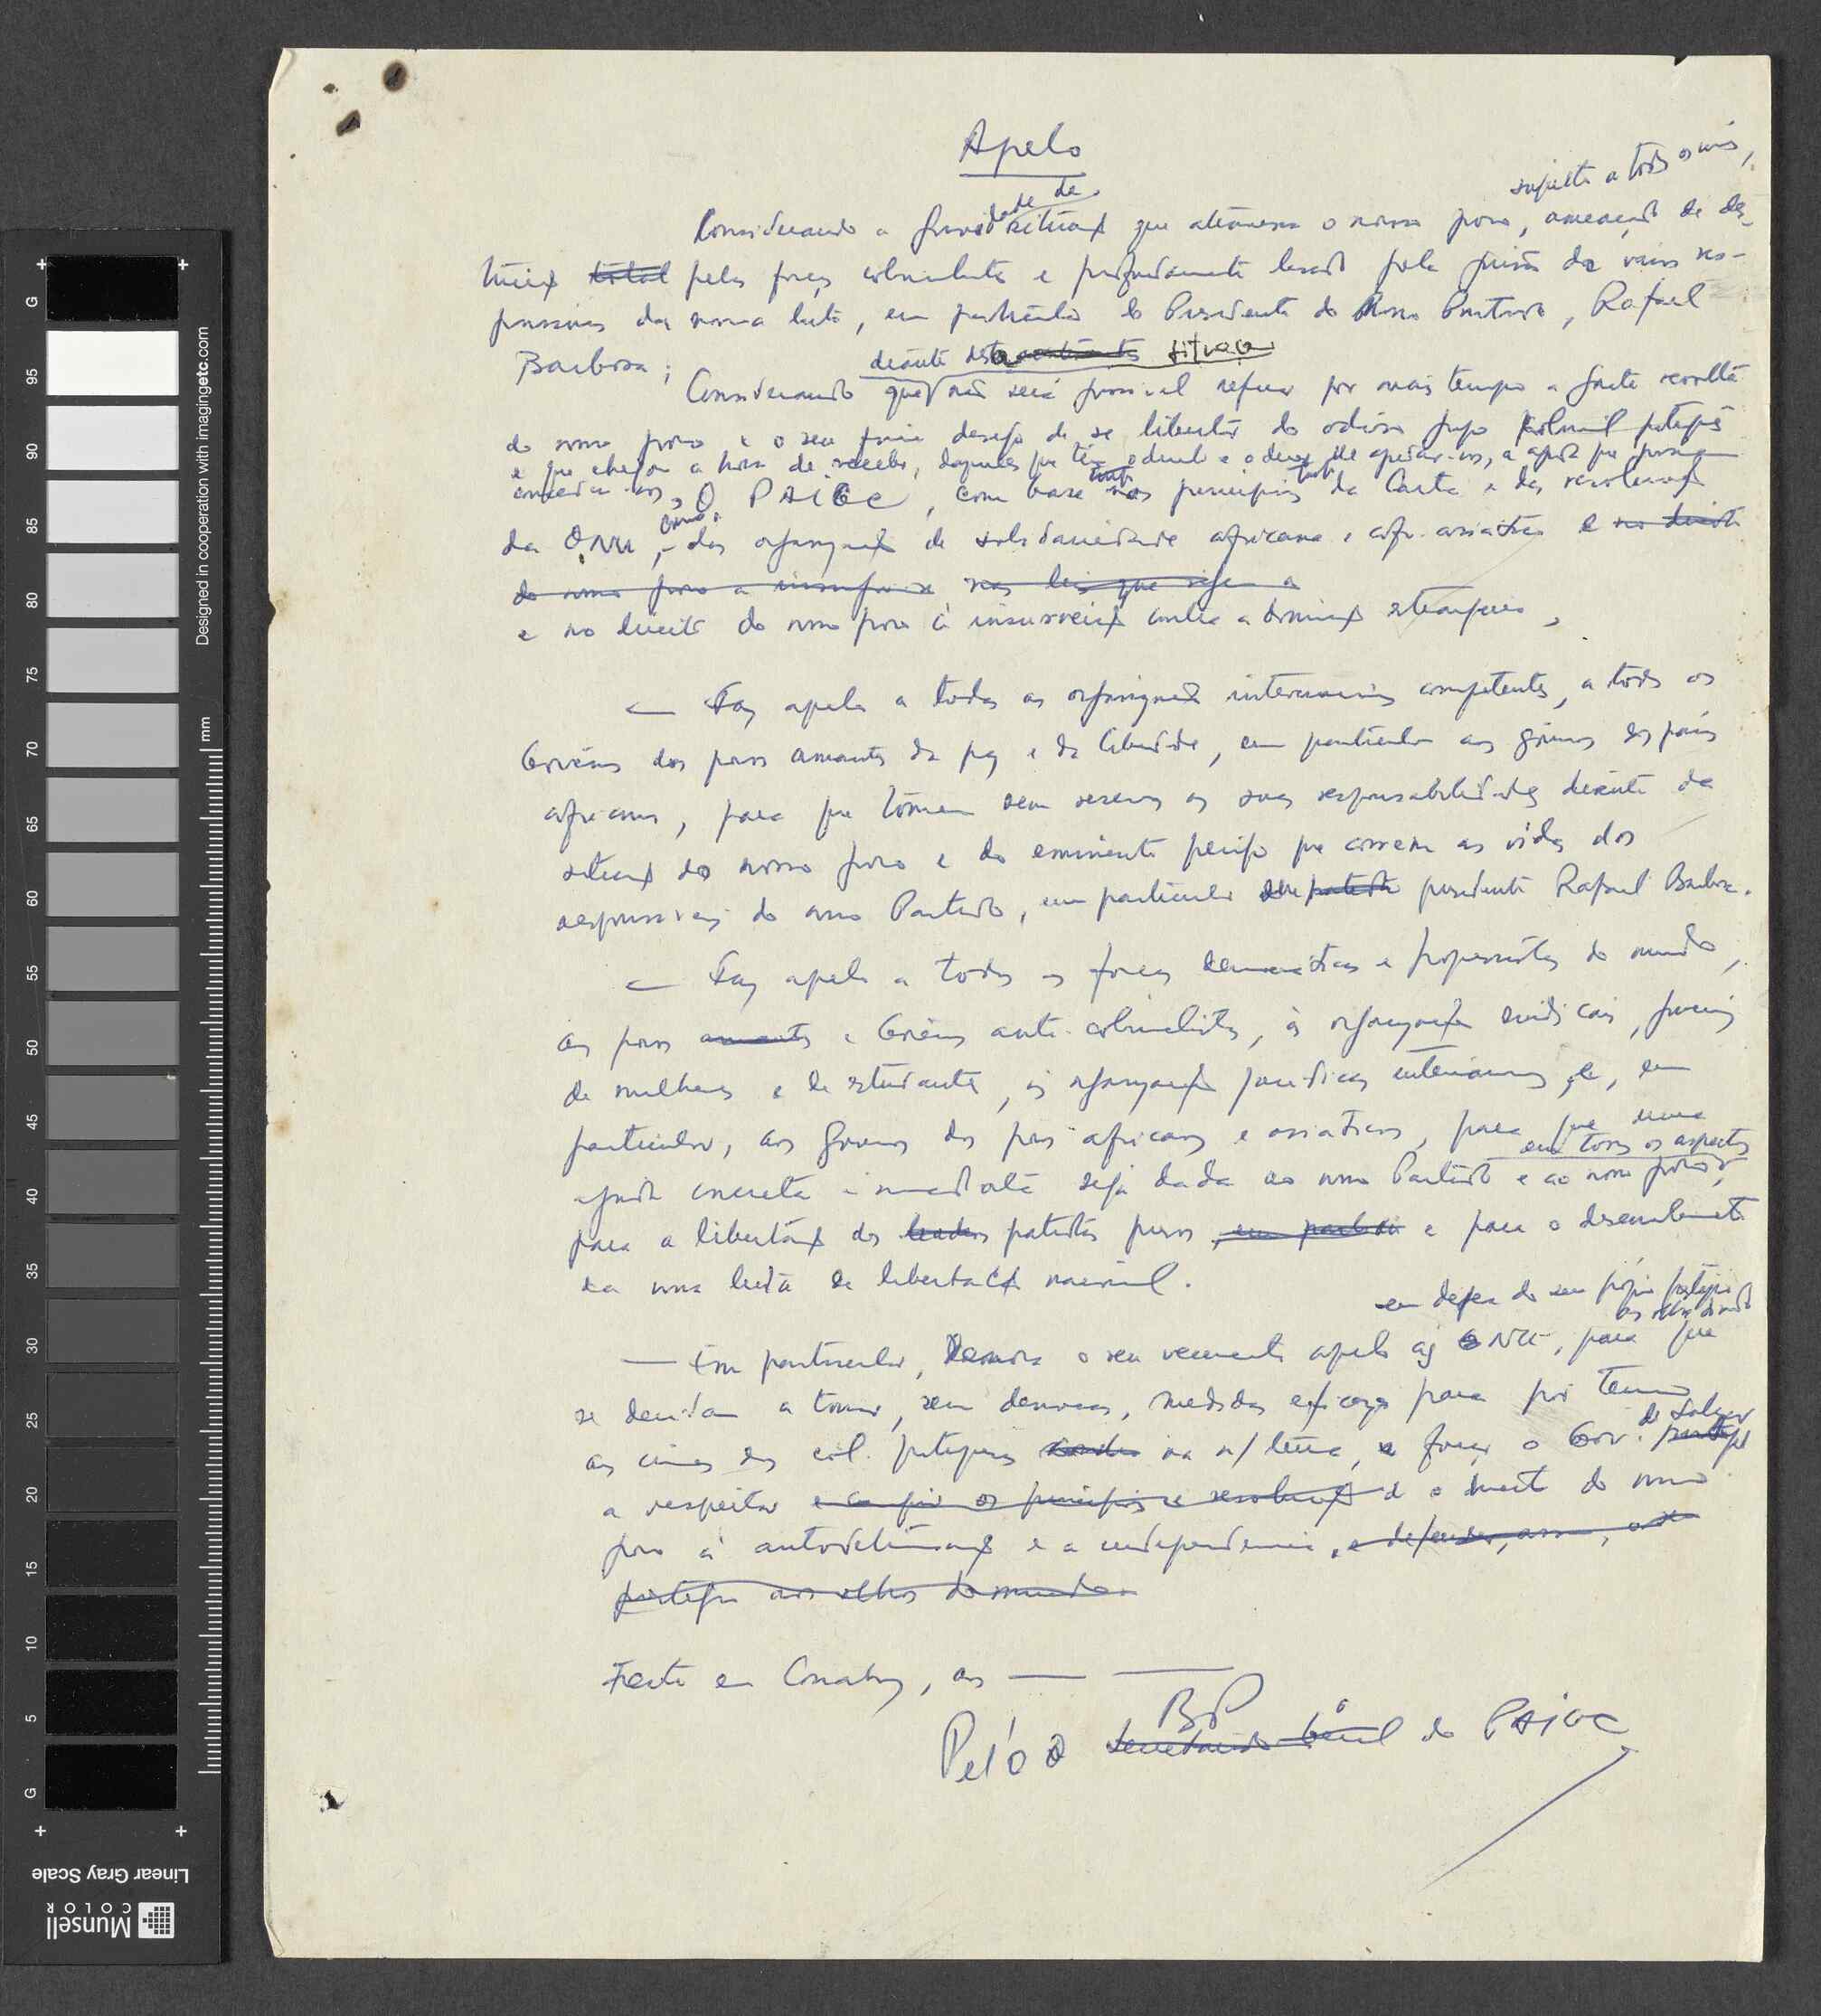 Apelo
sujeito a todos os
Considerando a gravidade da situação que atravessa o nosso povo, ameaçado de des-
truição total pelas forças colonialistas e profundamente lesado pela prisão de vários res-
ponsáveis da nossa luta, em particular o Presidente do Nosso Partido, Rafael
Barbosa;
deante desta situação
Considerando que não será possível refrear por mais tempo a justa revolta
do nosso povo e o seu desejo de se libertar do odioso jugo colonial português
e que chegou a hora de receber, daqueles que têm o direito e o dever de apoiar-nos, a ajuda que possam
conceder-nos, O PAIGC, com base nos princípios da Carta e das resoluções
da ONU, como das organizações de solidariedade africana e afro-asiática e no direito
do nosso povo a nas leis que regem a
e no direito do nosso povo à insurreição contra a dominação estrangeira,
— Faz apelo a todas as organizações internacionais competentes, a todos os
Governos dos povos amantes da paz e da liberdade, em particular aos governos dos países
africanos, para que tomem sem reservas as suas responsabilidades deante da
situação do nosso povo e do eminente perigo que correm as vidas dos
responsáveis do nosso Partido, em particular presidente Rafael Barbosa.
— Faz apelo a todas as forças democráticas e progressistas do mundo,
aos povos amantes e Governos anti-colonialistas, às organizações sindicais, juvenis,
de mulheres e de estudantes, às organizações jurídicas internacionais, e, em
particular, aos governos dos países africanos e asiáticos, para que uma
em todos os aspectos
ajuda concreta e imediata seja dada ao nosso Partido e ao nosso povo,
para a libertação dos leaders patriotas presos em particular e para o desenvolvimento
da nossa luta de libertação nacional.
em defesa do seu próprio prestígio
aos olhos do mundo
— Em particular, o seu veemente apelo às ONU, para que
se decidam a tomar, sem demoras, medidas eficazes para pôr termo
aos crimes dos col. portugueses na n/ terra, e forçar o Gov. de Salazar
a respeitar e cumprir os princípios e resoluções e o direito do nosso
povo à autodeterminação e a independência, e defender, assim, o seu
prestígio aos olhos do mundo.
Feito em Conakry, aos — —
BP
Pel'o Secretário Geral do PAIGC